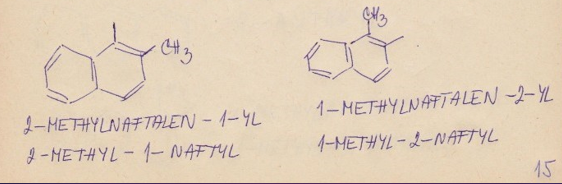 CH3
2-METHYLNAFTALEN-1-YL
2-METHYL-1-NAFTYL
CH3
1-METHYLNAFTALEN-2-YL
1-METHYL-2-NAFTYL
15